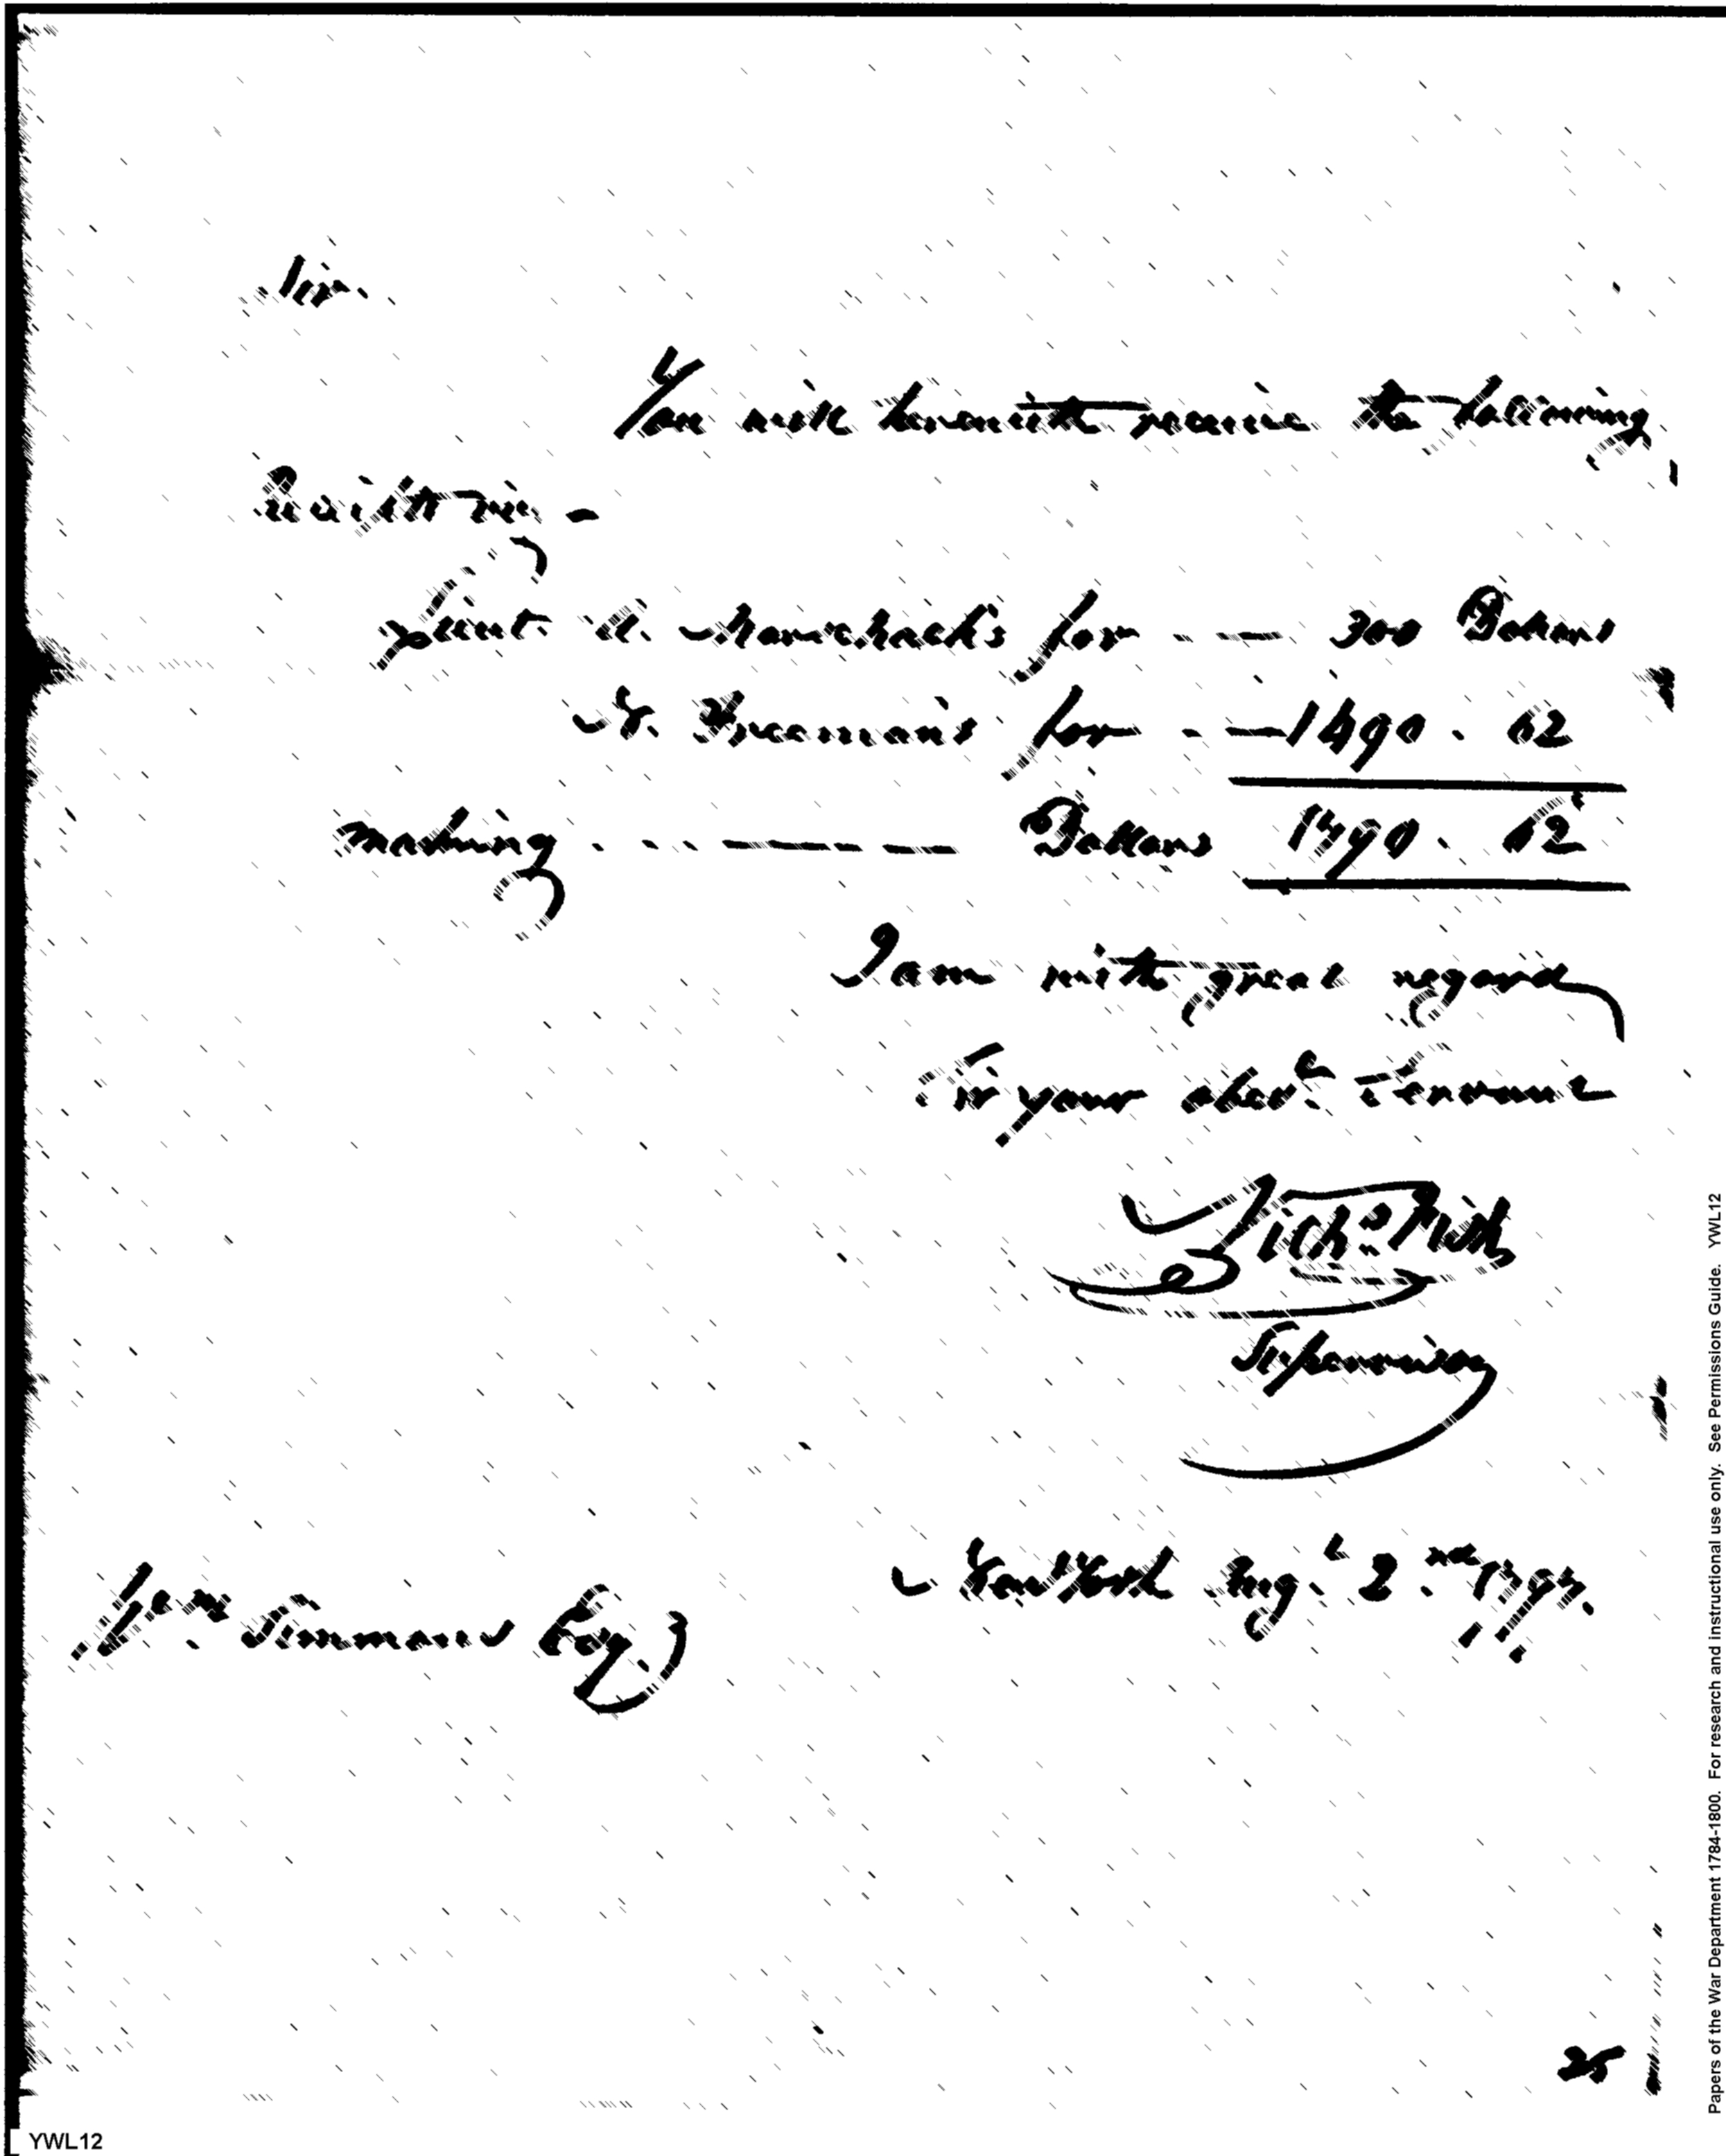 Sir
You will herewith receive the following
Receipts viz -
Lieut. for - - 300 Dollars
N. Freeman's for - - 1490. 62
making - - - - Dollars 1790. 62
I am with great regard
Sir your obed.t Servant
Supervisor
New York Aug.t 2.nd 1797.
W.m Simmons Esq.
25
YWL12
Papers of the War Department 1784-1800. For research and instructional use only. See Permissions Guide. YWL12